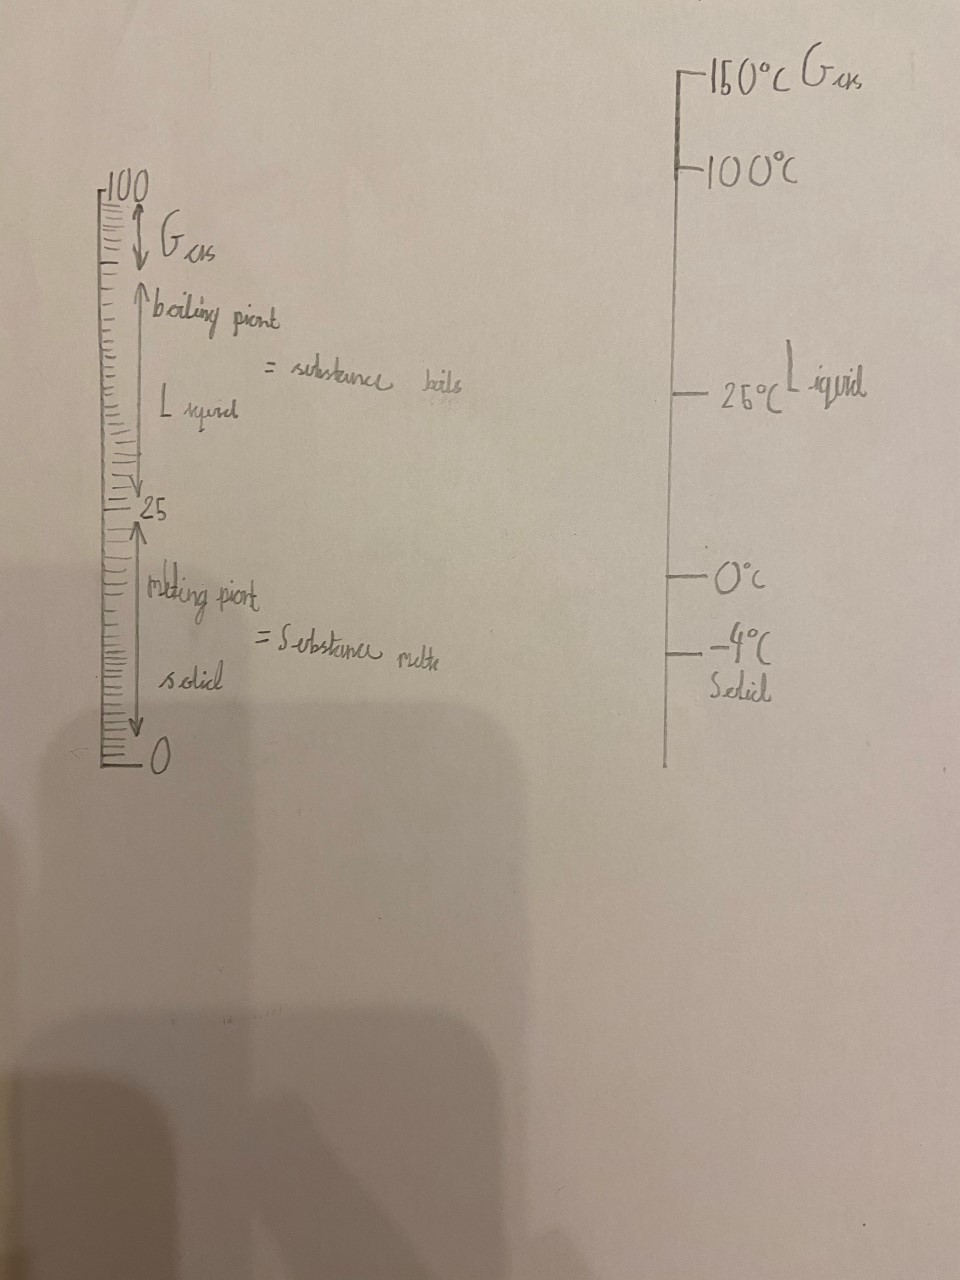 100
Gas
boiling piont
= substance boils
Liquid
25
melting piont
= Substance melts
solid
0
150°C Gas
100°C
25°C Liquid
0°C
-4°C
Solid